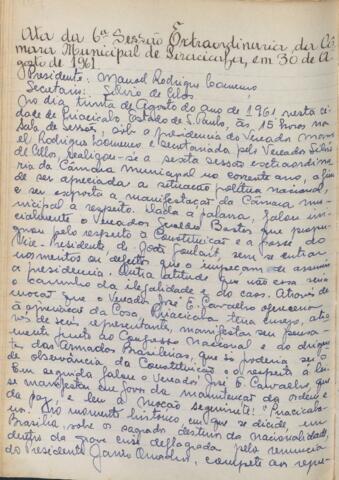 Ata da 6ª Sessão Extraordinaria, da Câ-
mara Municipal de Piracicaba, em 30 de A-
gosto de 1961.
Presidente: Manoel Rodrigues Lourenço
Secretario: Silvio de
No dia trinta de Agosto do ano de 1961, nesta ci-
dade de Piracicaba, Estado de S. Paulo, ás 15 horas na
Sala de Sessões, sob a presidencia do Vereador Mano-
el Rodrigues Lourenço e secretariado pelo Vereador Silvio
de realizou-se a sexta sessão extraordina-
ria da Câmara Municipal no corrente ano, a fim
de ser apreciada a situação politica nacional,
e ser exposta a manifestação da Câmara mu-
nicipal a respeito. Dada a palavra, falou ini-
cialmente o Vereador Bastos que
pelo respeito á Constituição e a posse do
Vice-Presidente, dr. João Goulart, sem se entrar
ou defeitos que o impeçam de assumir
a presidencia. Outra atitude que não essa seria
o caminho da ilegalidade e do caos. Através de
moção que o Vereador José E. Carvalho ofereceria
á apreciação da Casa, Piracicaba tem ensejo, atra-
vés de seus representantes, manifestar seu pensa-
mento junto ao Congresso Nacional e do
das Armadas Brasileiras, que só poderia ser o
de observancia da Constituição e o respeito á lei.
Em seguida falou o Vereador José E. Carvalho, que
se manifestou em favor da manutenção da ordem e
da paz, e leu a moção seguinte: "Piracicaba-
No momento historico, em que se decide, em
Brasilia, sobre o sagrado destino da nacionalidade,
dentro da grave crise deflagrada pela renuncia
do Presidente Janio Quadros, compete aos repre-